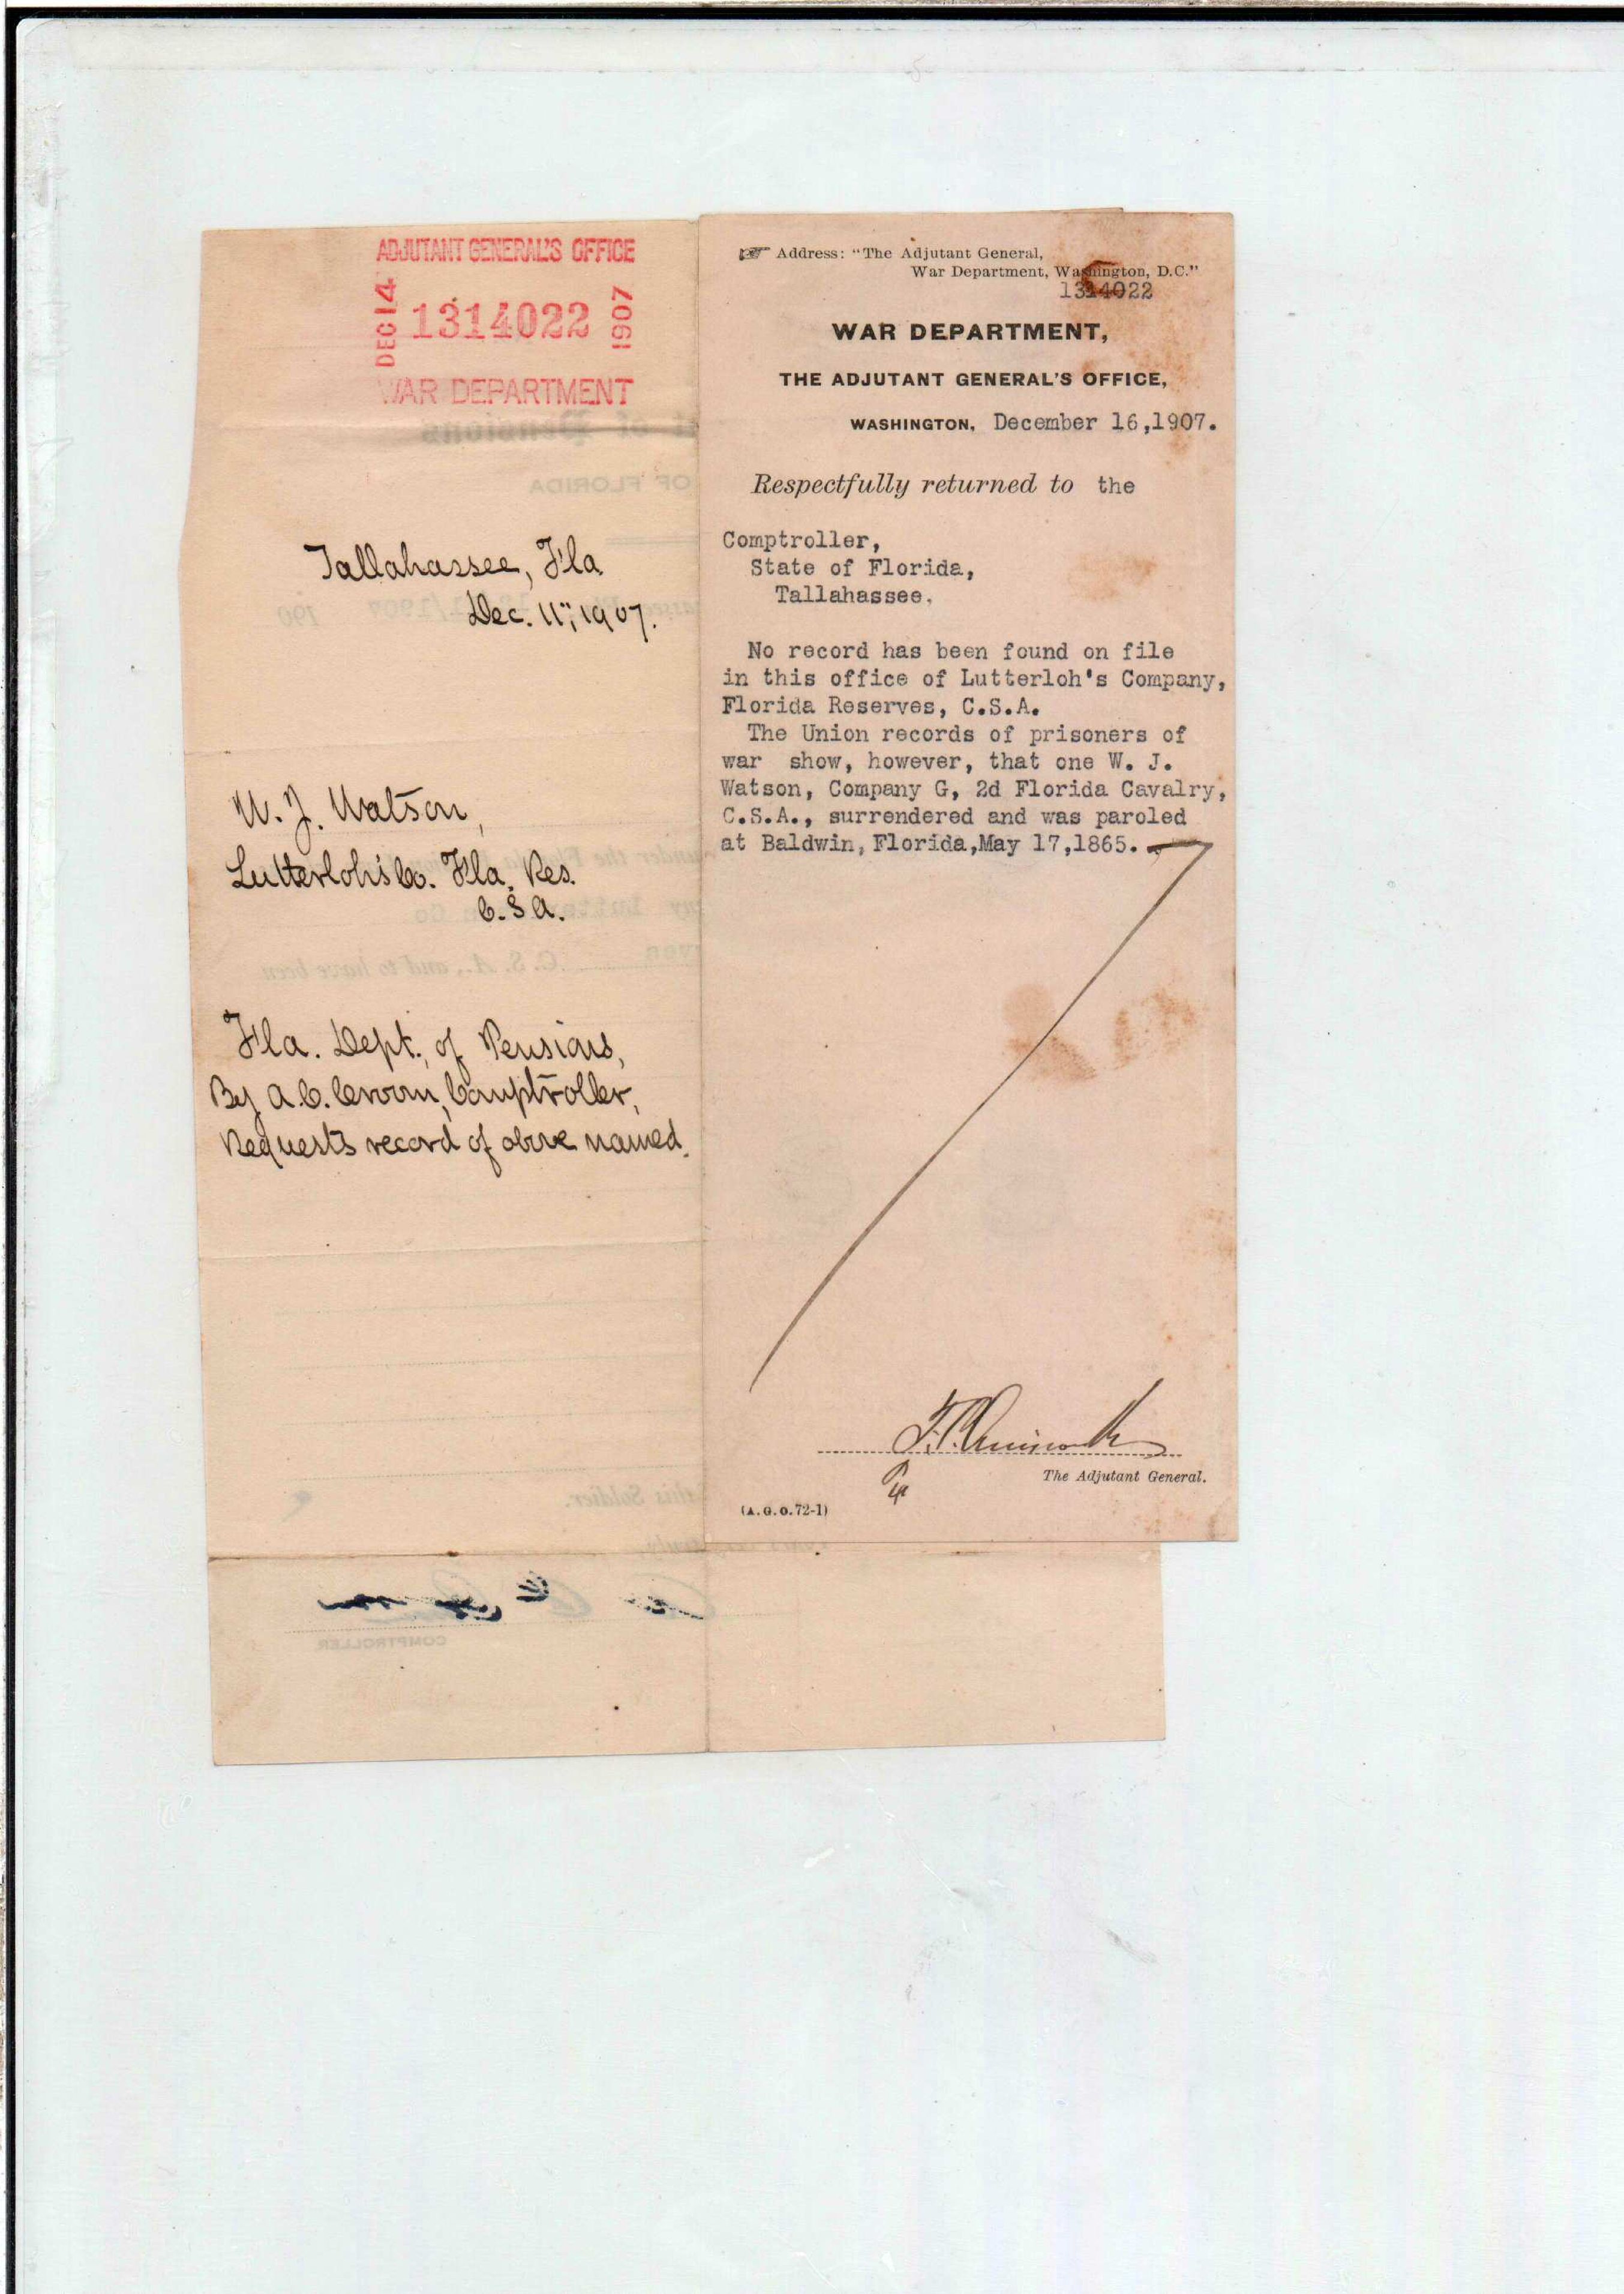 ADJUTANT GENERAL'S OFFICE
DEC 14 1314022 1907
WAR DEPARTMENT
Tallahassee, Fla
Dec. 11", 1907.
W. J. Watson,
Lutterloh's Co. Fla. Res.
C.S.A.
Fla. Dept. of Pensions,
By A.C. Croom, Comptroller,
Requests record of above named.
COMPTROLLER
Address: "The Adjutant General,
War Department, Washington, D.C."
1314022
WAR DEPARTMENT,
THE ADJUTANT GENERAL'S OFFICE,
WASHINGTON, December 16,1907.
Respectfully returned to the
Comptroller,
State of Florida,
Tallahassee.
No record has been found on file
in this office of Lutterloh's Company,
Florida Reserves, C.S.A.
The Union records of prisoners of
war show, however, that one W. J.
Watson, Company G, 2d Florida Cavalry,
C.S.A., surrendered and was paroled
at Baldwin, Florida,May 17,1865.
The Adjutant General.
(A.G.O.72-1)